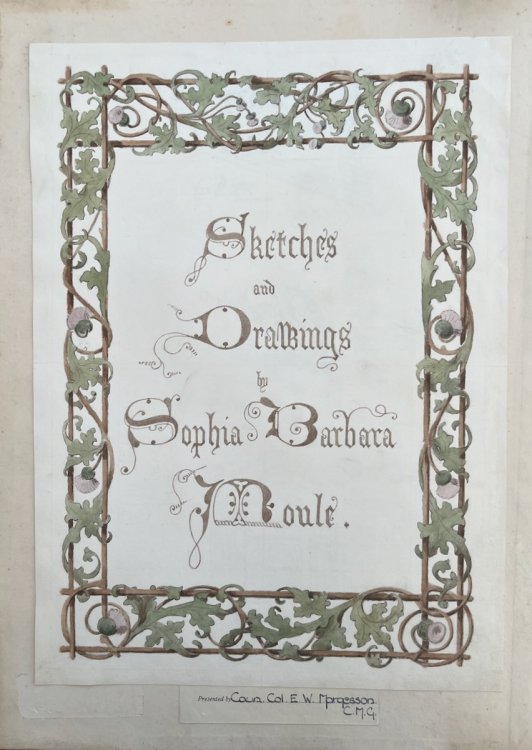 Sketches
and
Drawings
by
Sophia Barbara
Moule.
Presented by Coun. Col. E. W. Margesson
C.M.G.